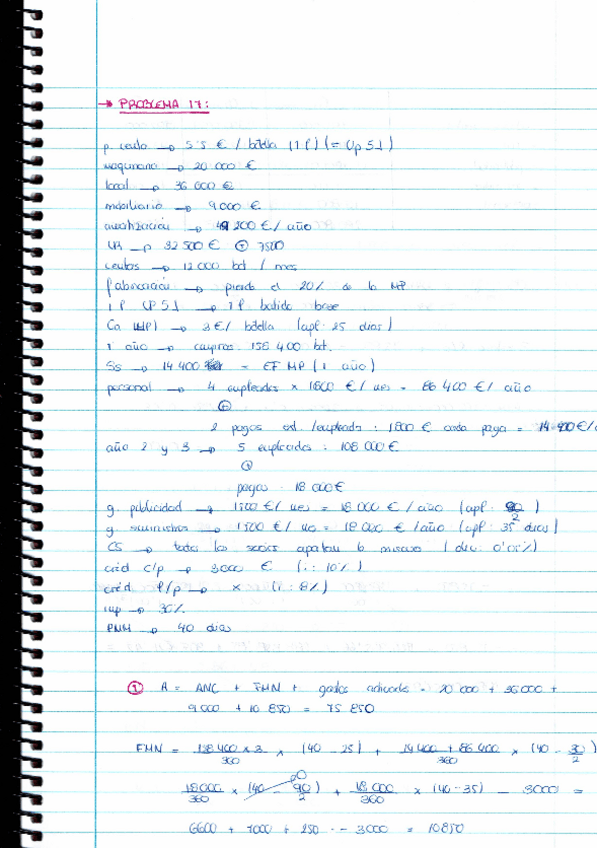 → PROBLEMA 17:
p. venta → 5'5 € / botella (1 P) (= Up 51)
maquinaria → 20 000 €
local → 36 000 €
mobiliario → 9 000 €
amortización → 200 € / año
→ 32 500 € + 7500
ventas → 12 000 bot / mes
fabricación → pierde el 20% de la MP
1 P → 1 P batido base
Co (MP) → 3 € / botella (apl. 25 dias)
1 año → compras 158 400 bot.
Ss → 14 400 = EF MP (1 año)
personal → 4 empleados × 1800 € / mes = 86 400 € / año
+
2 pagas ext. / empleado : 1800 € cada paga = 14 400 € /
año 2 y 3 → 5 empleados : 108 000 €
+
pagas 18 000 €
g. publicidad → 1500 € / mes = 18 000 € / año (apl. 90/2)
g suministros → 1500 € / mes = 18 000 € / año (apl. 35 dias)
CS → todos los socios aportan lo mismo
créd c/p → 3000 € (i: 10%)
créd l/p → x (i: 8%)
imp → 30%
PMM → 40 dias
① A = ANC + FMN + gastos = 20 000 + 36 000 +
9 000 + 10 850 = 75 850
FMN = 158 400 × 3 / 360 × (40 - 25) + 14 400 + 86 400 / 360 × (40 - 30/2)
18 000 / 360 × (40 - 90/2) 0 + 18 000 / 360 × (40 - 35) - 3000 =
6600 + 7000 + 250 - 3000 = 10850